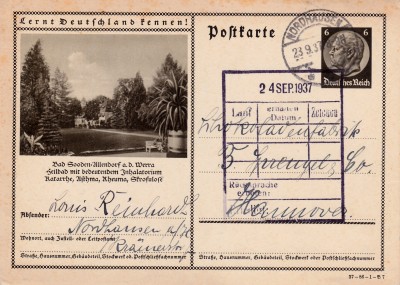 Lernt Deutschland kennen!
Postkarte
NORDHAUSEN
23.9.37
6 6
Deutsches Reich
24 SEP. 1937
Lauf
erhalten
Datum
Zeichen
Bad Sooden-Allendorf a. d. Werra
Heilbad mit bedeutendem Inhalatorium
Katarrhe, Asthma, Rheuma, Skrofulose
Schokoladenfabrik
B. Sprengel & Co.
Rücksprache
Hannover
Absender:
Louis Reinhardt
Nordhausen a/H
Wohnort, auch Zustell- oder Leitpostamt
Straße, Hausnummer, Gebäudeteil, Stockwerk od. Postschließfachnummer
Straße, Hausnummer, Gebäudeteil, Stockwerk oder Postschließfachnummer